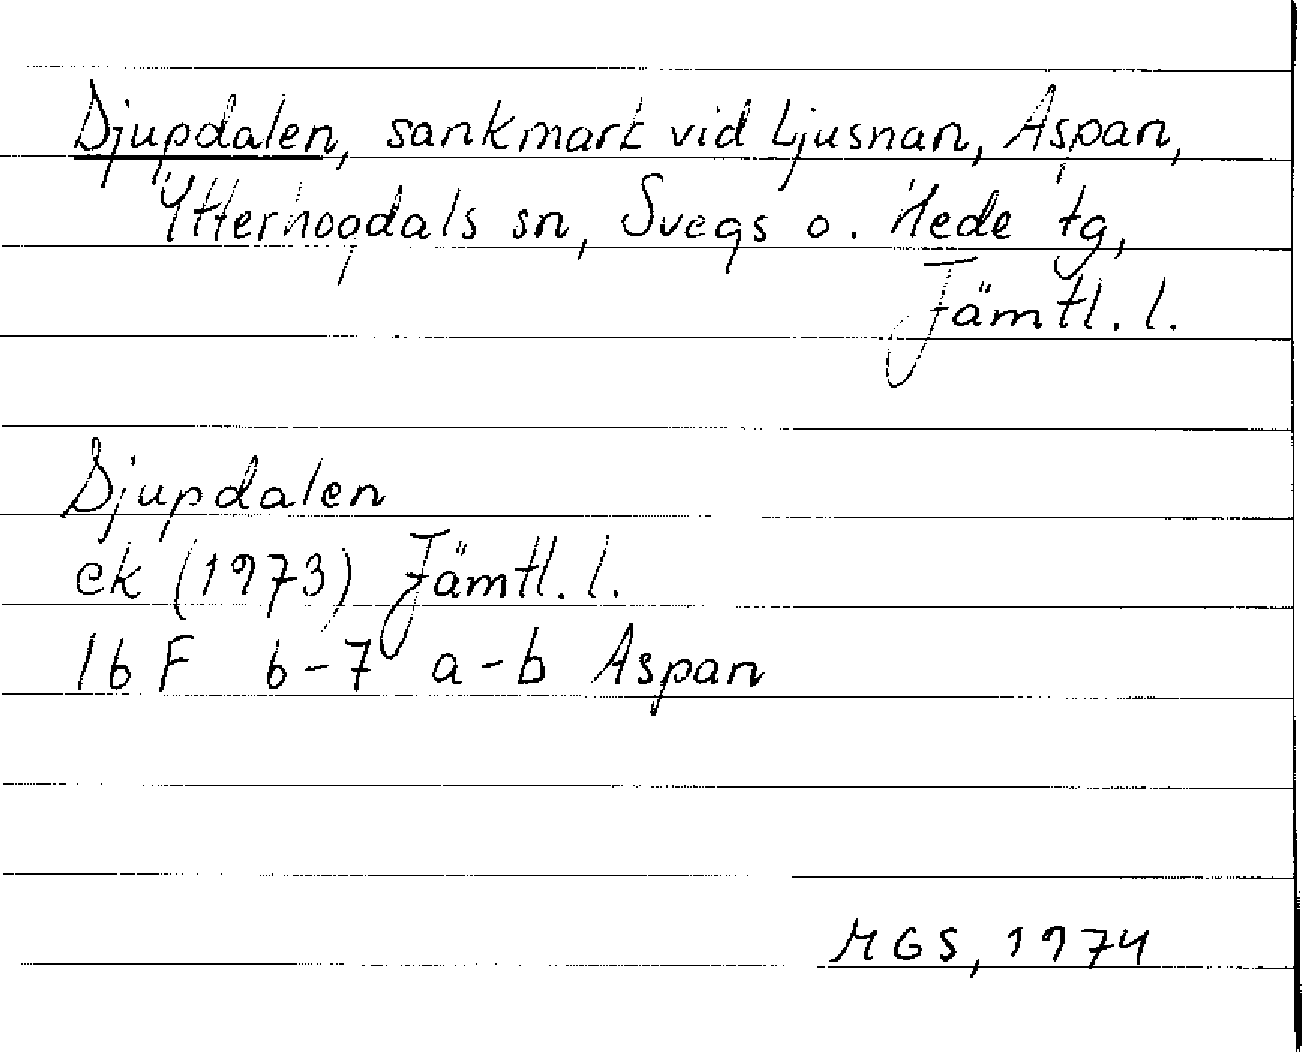 Djupdalen, sankmark vid Ljusnan, Aspan,
Ytterhogdals sn, Svegs o. Hede tg,
Jämtl. l.
Djupdalen
ek (1973) Jämtl. l.
16 F 6-7 a-b Aspan
MGS, 1974